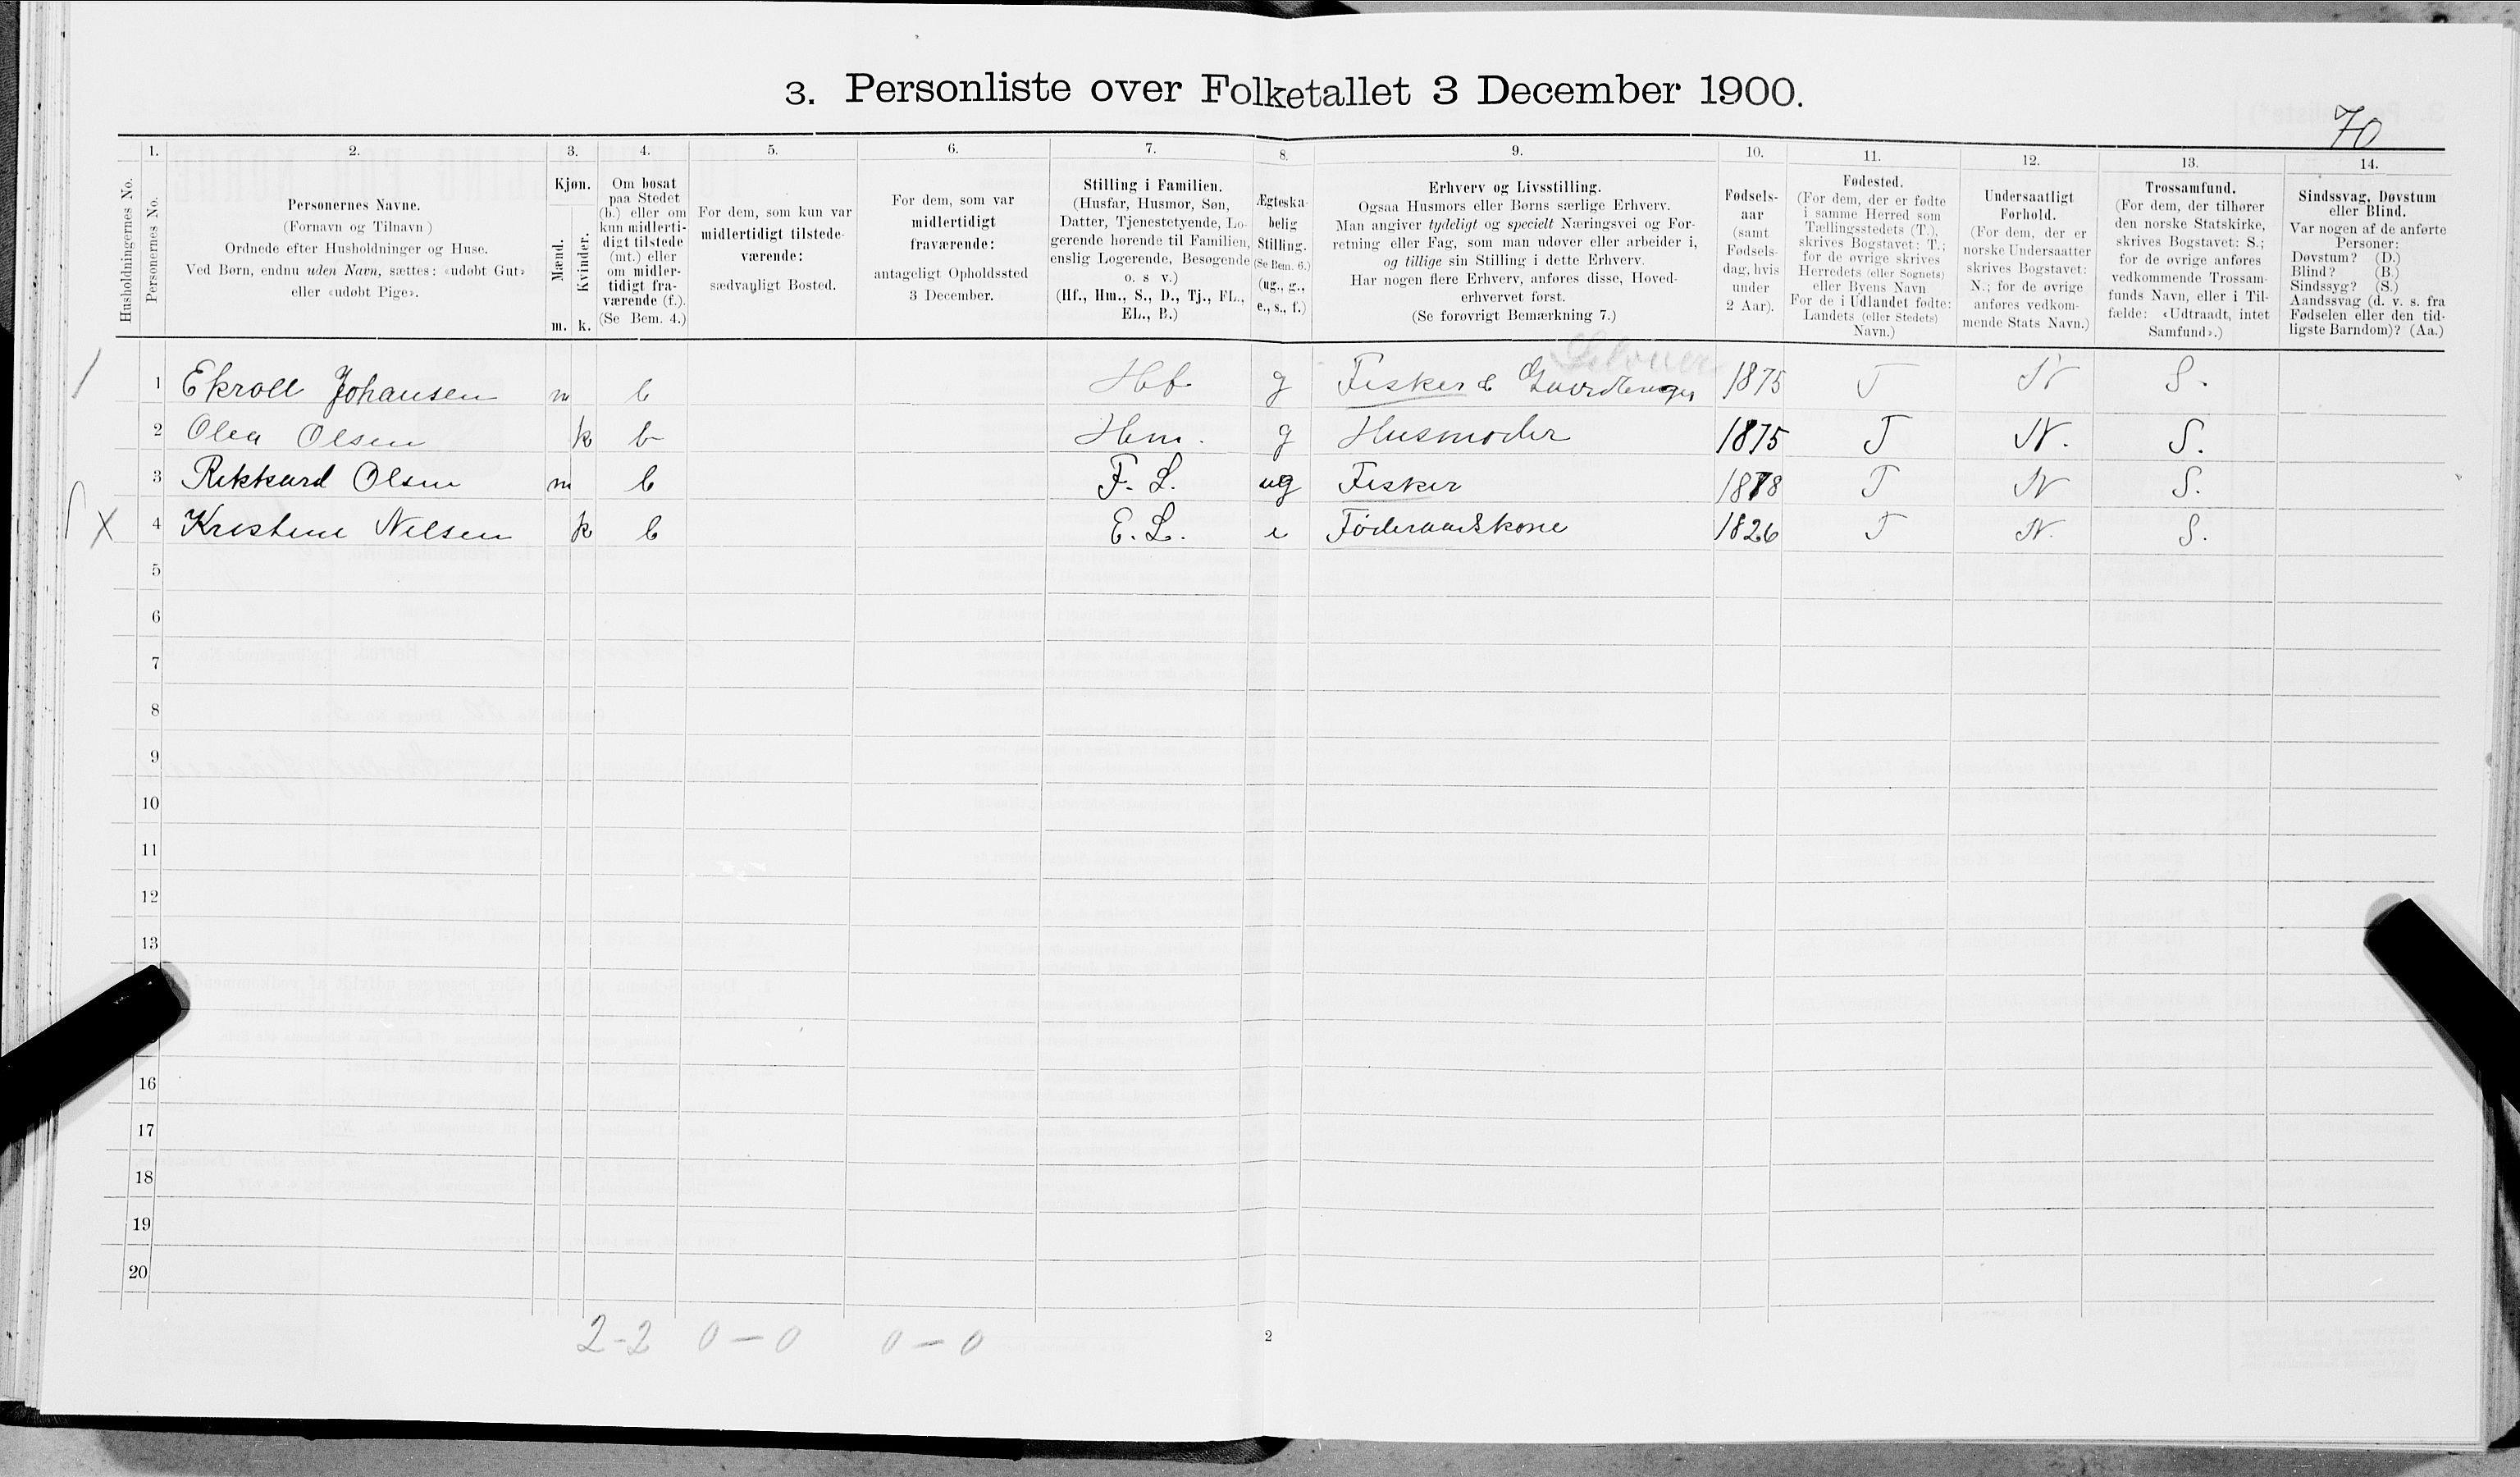 3. Personliste over Folketallet 3 December 1900.
70
1. 2. 3. 4. 5. 6. 7. 8. 9. 10. 11. 12. 13. 14.
Husholdningernes No.
Personernes No.
Personernes Navne.
(Fornavn og Tilnavn)
Ordnede efter Husholdninger og Huse.
Ved Børn, endnu uden Navn, sættes: «udøbt Gut»
eller «udøbt Pige».
Kjøn.
Mænd.
Kvinder.
m. k.
Om bosat
paa Stedet
(b.) eller om
kun midlerti-
digt tilstede
(mt.) eller
om midler-
tidigt fra-
værende (f.).
(Se Bem. 4.)
For dem, som kun var
midlertidigt tilstede-
værende:
sædvanligt Bosted.
For dem, som var
midlertidigt
fraværende:
antageligt Opholdssted
3 December.
Stilling i Familien.
(Husfar, Husmor, Søn,
Datter, Tjenestetyende, Lo-
gerende hørende til Familien,
enslig Logerende, Besøgende
o. s v.)
(Hf., Hm., S., D., Tj., FL.,
EL., B.)
Ægteska-
belig
Stilling.
(Se Bem. 6.)
(ug., g.,
e., s., f.)
Erhverv og Livsstilling.
Ogsaa Husmors eller Børns særlige Erhverv.
Man angiver tydeligt og specielt Næringsvei og For-
retning eller Fag, som man udøver eller arbeider i,
og tillige sin Stilling i dette Erhverv.
Har nogen flere Erhverv, anføres disse, Hoved-
erhvervet først.
(Se forøvrigt Bemærkning 7.)
Fødsels-
aar
(samt
Fødsels-
dag, hvis
under
2 Aar).
Fødested.
(For dem, der er fødte
i samme Herred som
Tællingsstedets (T.),
skrives Bogstavet: T.;
for de øvrige skrives
Herredets (eller Sognets)
eller Byens Navn
For de i Udlandet fødte:
Landets (eller Stedets)
Navn.)
Undersaatligt
Forhold.
(For dem, der er
norske Undersaatter
skrives Bogstavet:
N.; for de øvrige
anføres vedkom-
mende Stats Navn.)
Trossamfund.
(For dem, der tilhører
den norske Statskirke,
skrives Bogstavet: S.;
for de øvrige anføres
vedkommende Trossam-
funds Navn, eller i Til-
fælde: «Udtraadt, intet
Samfund».)
Sindssvag, Døvstum
eller Blind.
Var nogen af de anførte
Personer:
Døvstum? (D.)
Blind? (B.)
Sindssyg? (S.)
Aandssvag (d. v. s. fra
Fødselen eller den tid-
ligste Barndom)? (Aa.)
1 Ekroll Johansen m b Hf g Fisker & 1875 T N S.
2 Olea Olsen k b Hm. g Husmoder 1875 T N. S.
3 Rikkard Olsen m b F. L. ug Fisker 1878 T N S.
X 4 Kristine Nilsen k b E. L. e Føderaadskone 1826 T N. S.
5
6
7
8
9
10
11
12
13
16
17
18
19
20
2-2 0-0 0-0
2